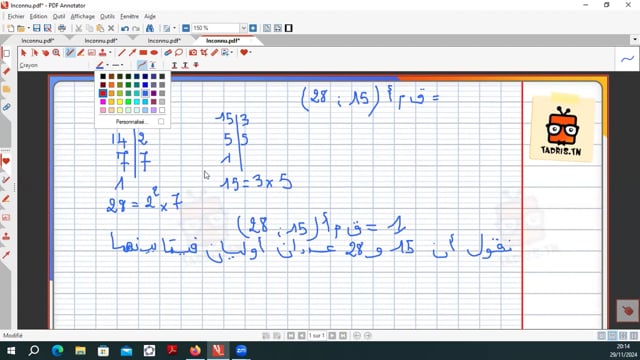 Inconnu.pdf* - PDF Annotator
Fichier Edition Outil Affichage Outils Fenêtre Aide
150 %
Inconnu.pdf* Inconnu.pdf* Inconnu.pdf* Inconnu.pdf*
Crayon
Personnalisé...
ق م أ (15 ; 28) =
15 | 3
14 | 2
5 | 5
7 | 7
1
1
15 = 3 × 5
28 = 2² × 7
ق م أ (15 ; 28) = 1
نقول أن 15 و 28 عددان أوليان فيما بينهما
TADRIS.TN
Modifié
1 sur 1
20:14
29/11/2024